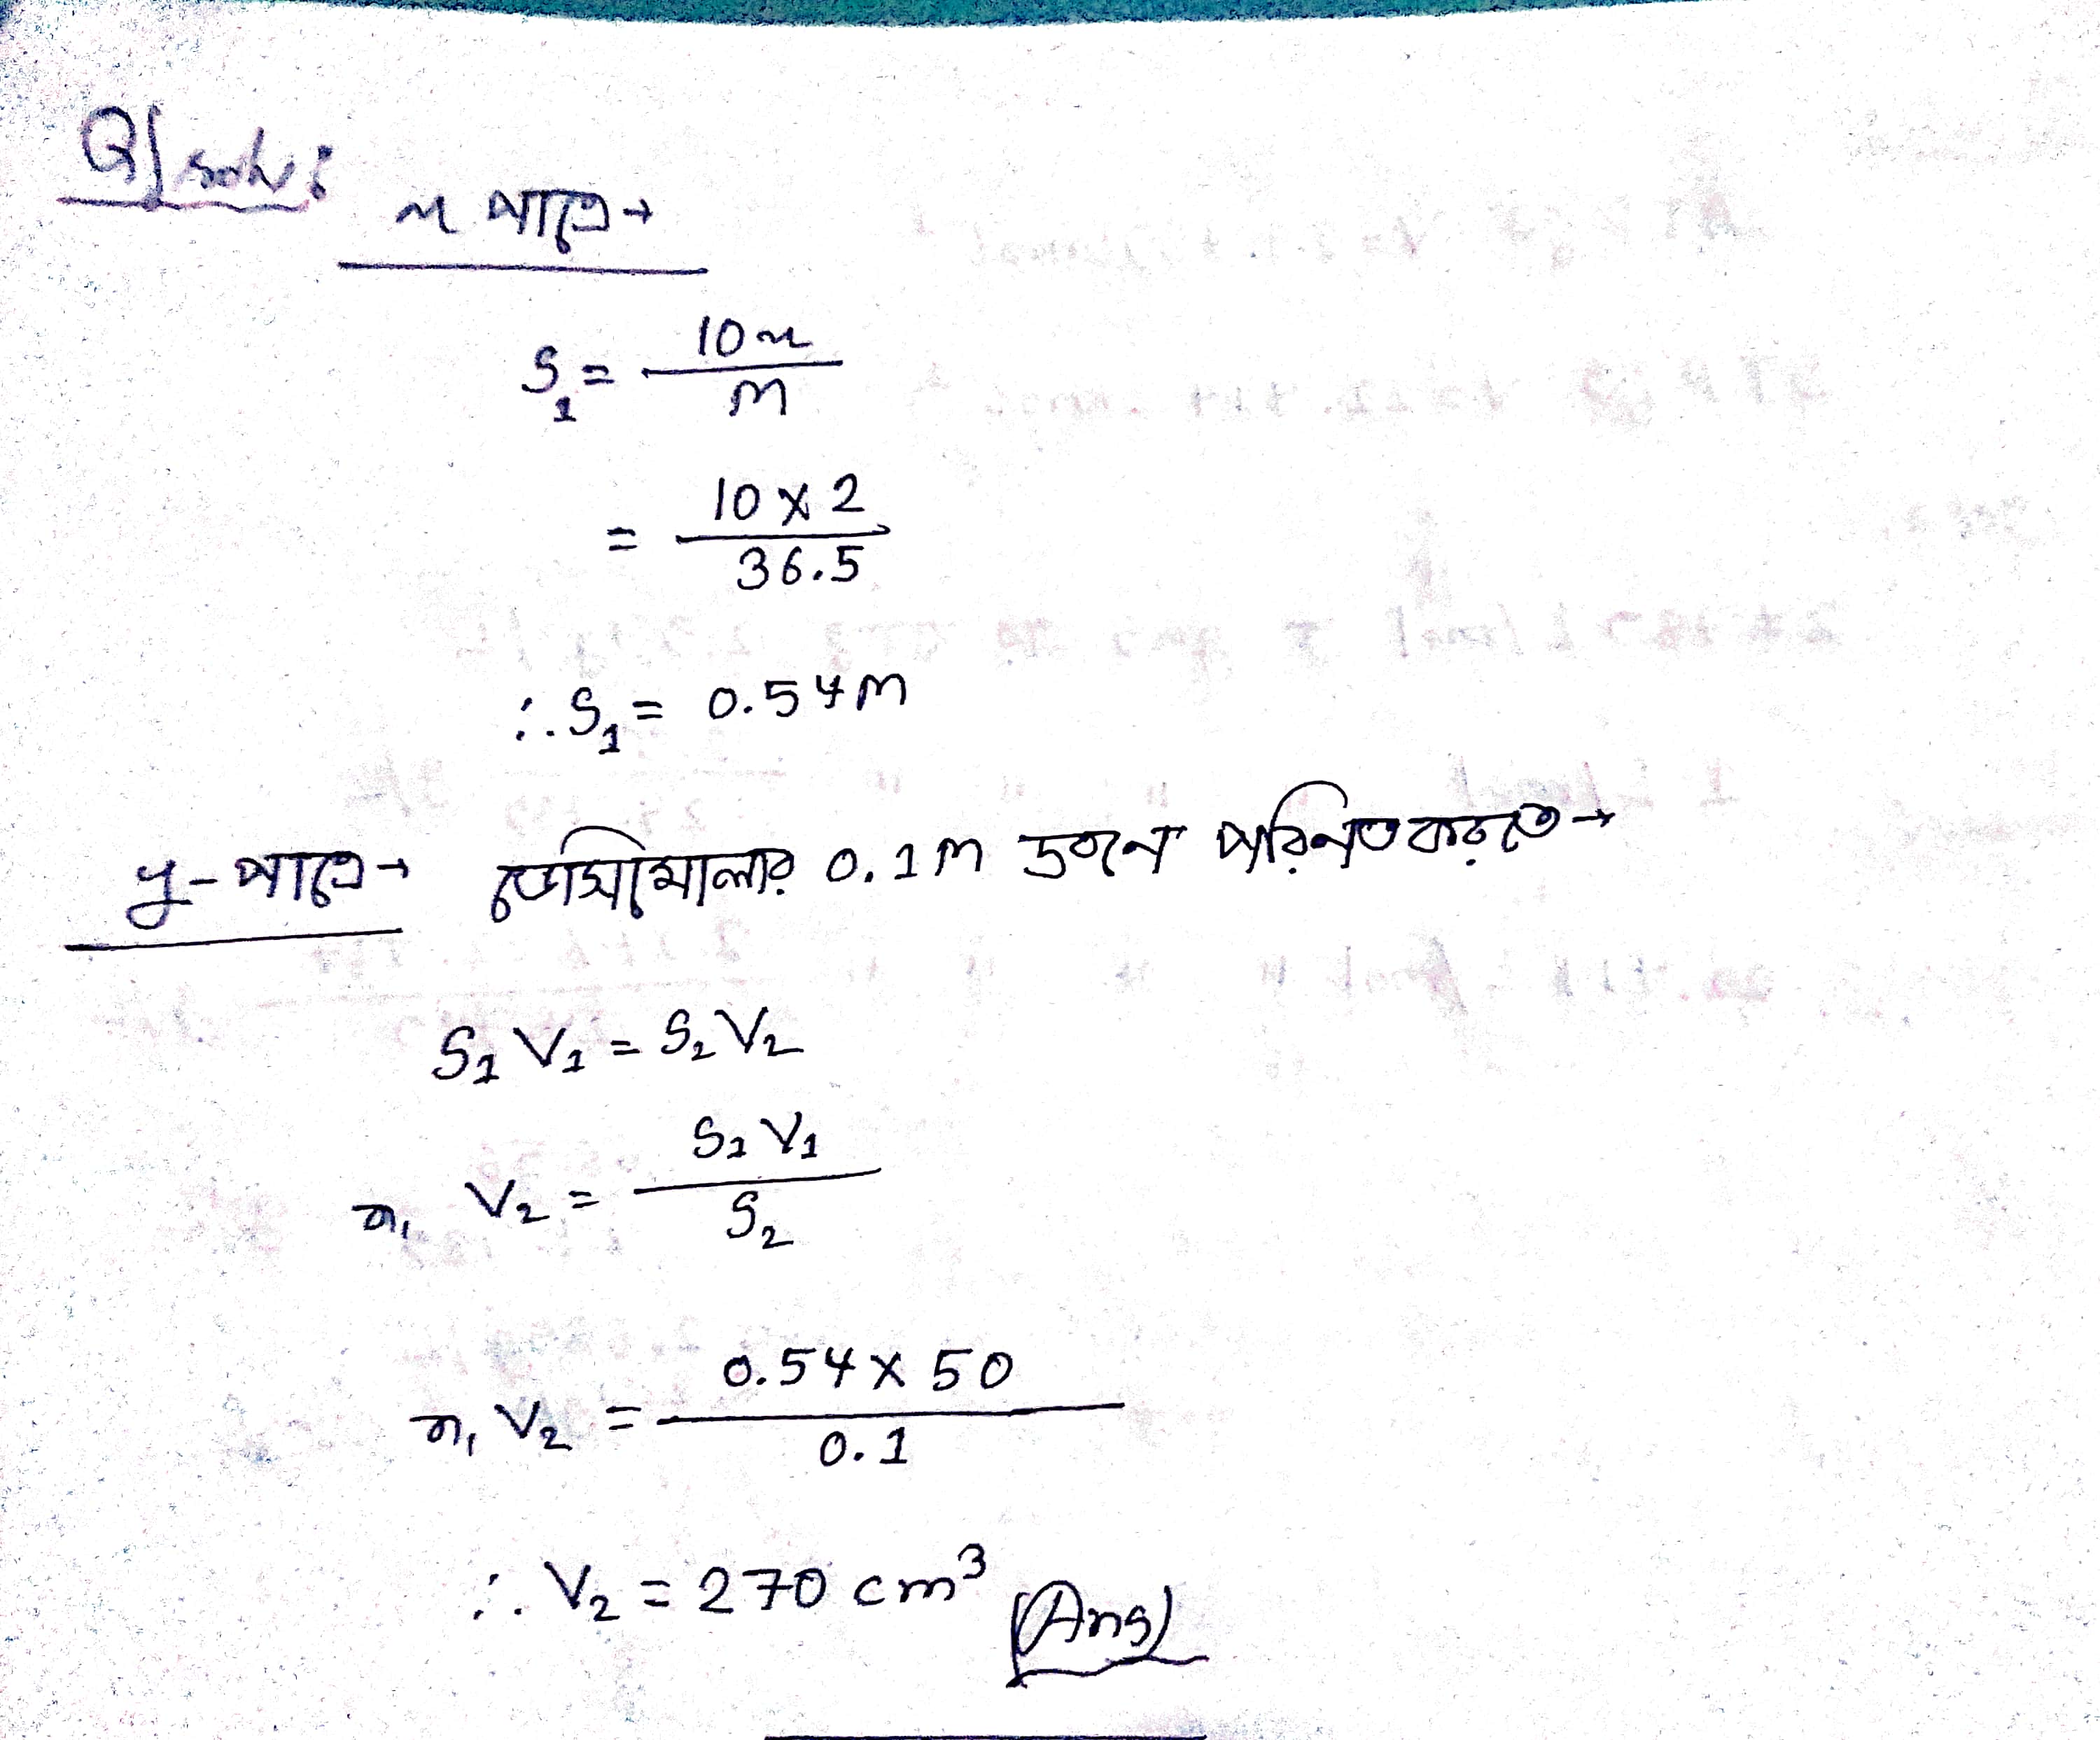 Q| solv:
x পাত্রে →
S₁ = 10x / M
= 10 × 2 / 36.5
∴ S₁ = 0.54 M
y - পাত্রে → ডেসিমোলার 0.1 M দ্রবনে পরিনত করতে →
S₁ V₁ = S₂ V₂
বা, V₂ = S₁ V₁ / S₂
বা, V₂ = 0.54 × 50 / 0.1
∴ V₂ = 270 cm³ (Ans)